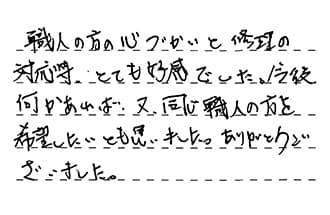 職人の方の心づかいと修理の
対応等、とても好感でした。今後
何かあれば、又、同じ職人の方を
希望したいとも思いました。ありがとうご
ざいました。